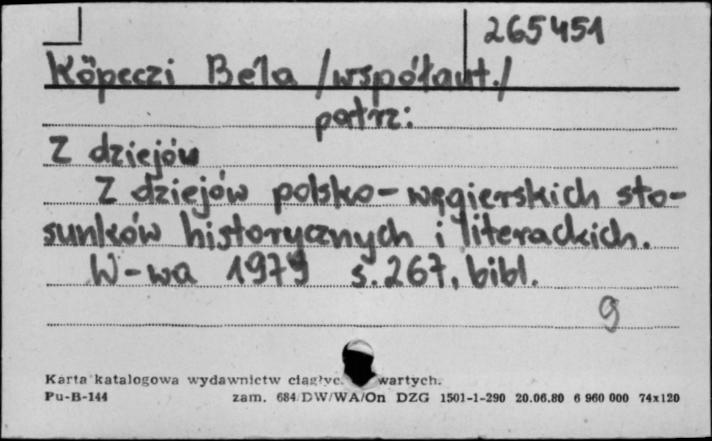 265451
Köpeczi Béla /współaut./
patrz:
Z dziejów
Z dziejów polsko-węgierskich sto-
sunków historycznych i literackich.
W-wa 1979 s. 267, bibl.
9
Karta katalogowa wydawnictw ciągłyc. wartych.
Pu-B-144 zam. 684/DW/WA/On DZG 1501-1-290 20.06.80 6 960 000 74x120